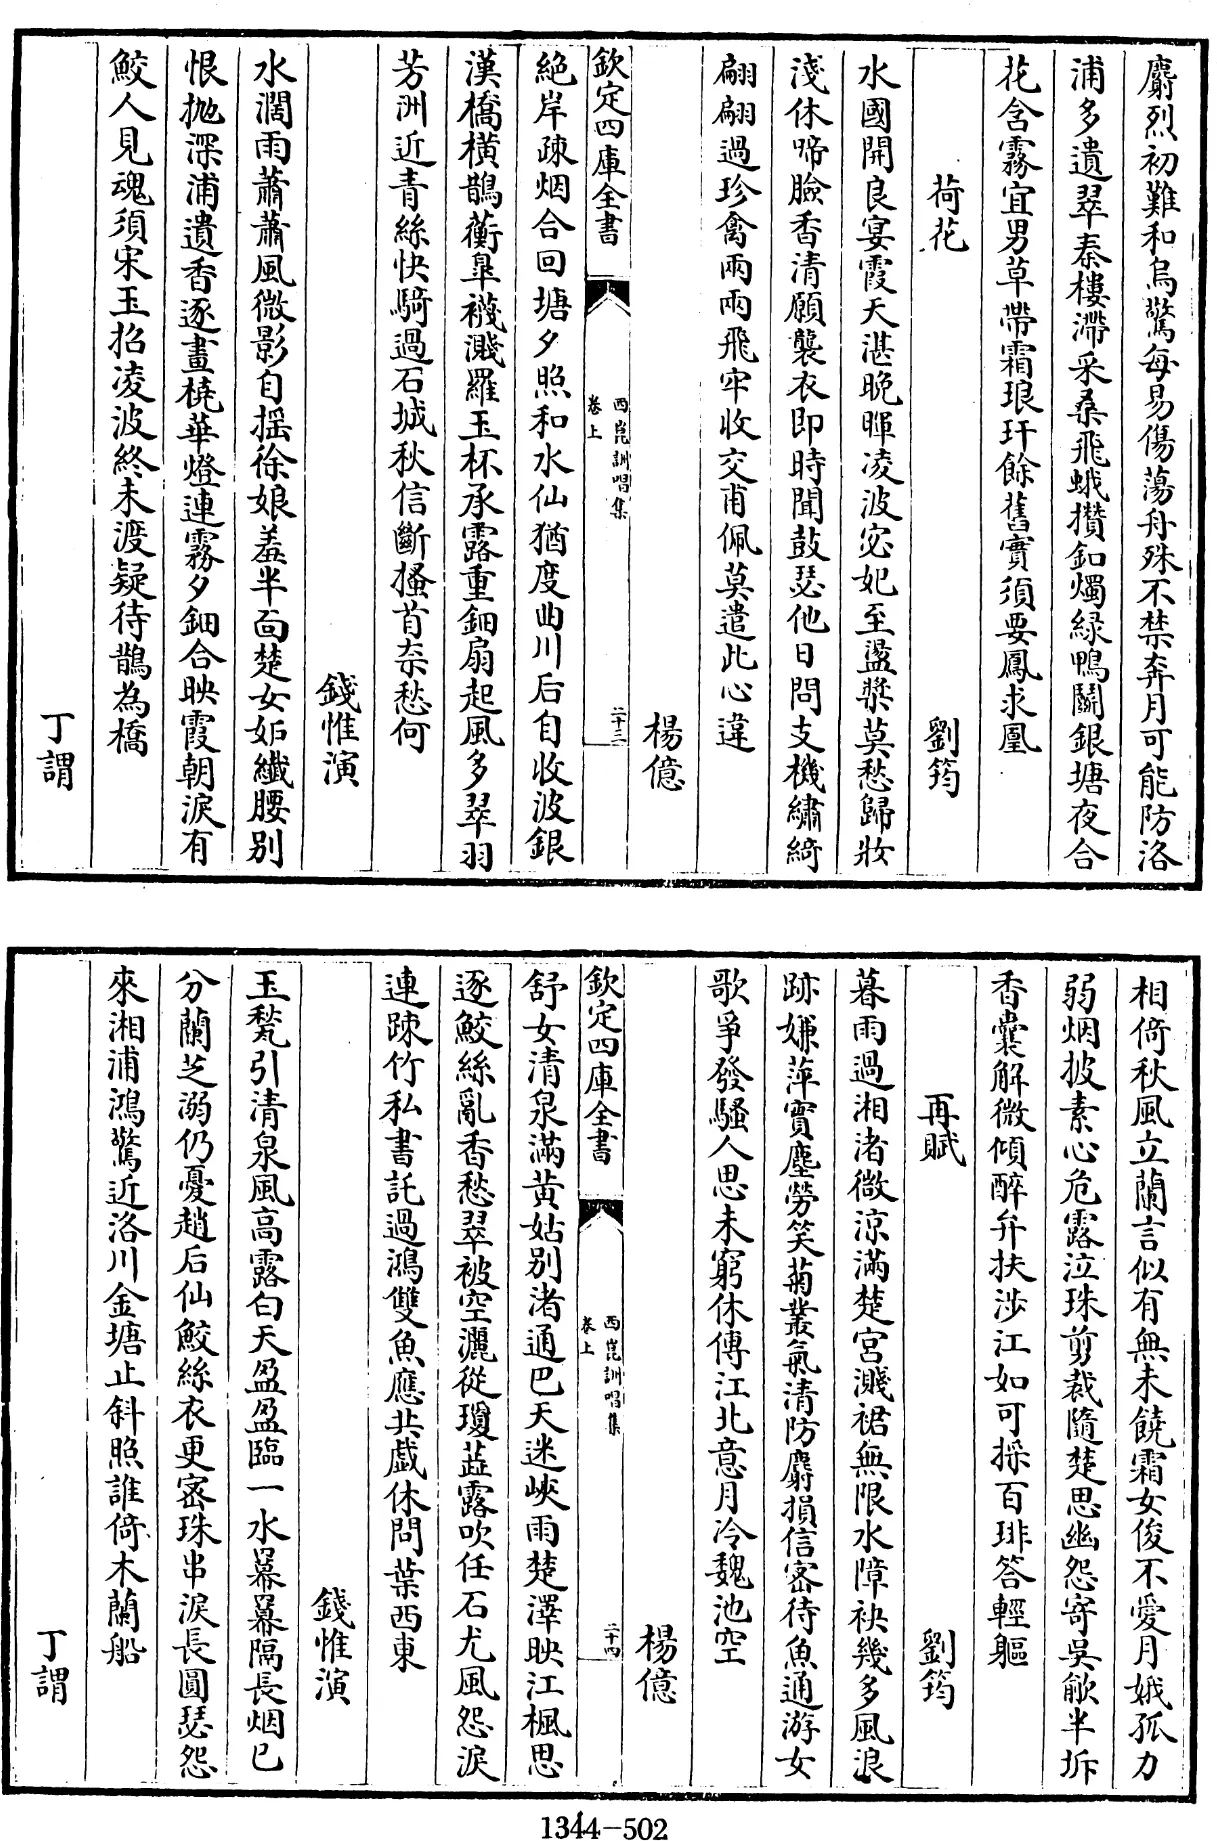 麝烈初難和烏驚每易傷蕩舟殊不禁奔月可能防洛
浦多遺翠秦樓滯采桑飛蛾攢釦燭緑鴨鬭銀塘夜合
花含霧宜男草帶霜琅玕餘舊實須要鳳求凰
荷花
劉筠
水國開良宴霞天湛晚暉凌波宓妃至盪槳莫愁歸妝
淺休啼臉香清願襲衣即時聞鼓瑟他日問支機繡綺
翩翩過珍禽兩兩飛牢收交甫佩莫遣此心違
楊億
欽定四庫全書
西崑訓唱集
卷上
二十三
絶岸疎烟合回塘夕照和水仙猶度曲川后自收波銀
漢橋横鵲蘅臯襪濺羅玉杯承露重鈿扇起風多翠羽
芳洲近青絲快騎過石城秋信斷搔首奈愁何
錢惟演
水濶雨蕭蕭風微影自摇徐娘羞半面楚女妬纎腰别
恨抛深浦遺香逐畫橈華燈連霧夕鈿合映霞朝淚有
鮫人見魂須宋玉招凌波終未渡疑待鵲為橋
丁謂
相倚秋風立蘭言似有無未饒霜女俊不愛月娥孤力
弱烟披素心危露泣珠剪裁隨楚思幽怨寄吳歈半拆
香囊解微傾醉弁扶涉江如可採百琲答輕軀
再賦
劉筠
暮雨過湘渚微涼滿楚宫濺裙無限水障袂幾多風浪
跡嫌萍實塵勞笑菊叢氣清防麝損信密待魚通游女
歌爭發騷人思未窮休傳江北意月冷魏池空
楊億
欽定四庫全書
西崑訓唱集
卷上
二十四
舒女清泉滿黄姑别渚通巴天迷峽雨楚澤映江楓思
逐鮫絲亂香愁翠被空灑從瓊蕋露吹任石尤風怨淚
連疎竹私書託過鴻雙魚應共戲休問葉西東
錢惟演
玉甃引清泉風高露白天盈盈臨一水羃羃隔長烟已
分蘭芝溺仍憂趙后仙鮫絲衣更密珠串淚長圓瑟怨
來湘浦鴻驚近洛川金塘止斜照誰倚木蘭船
丁謂
1344-502